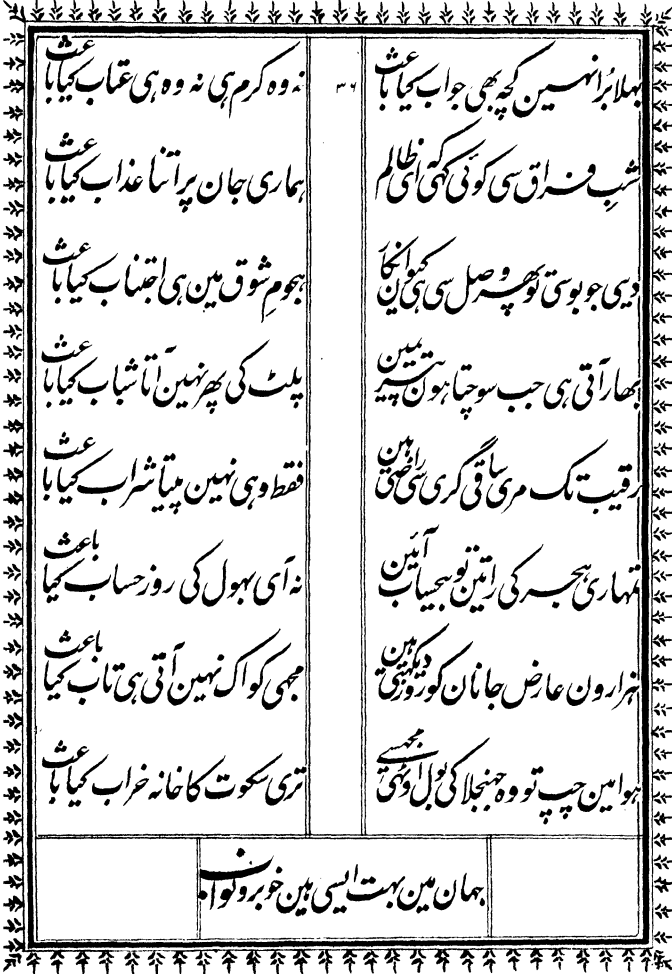 بہلا برا نہین کچہ بھی جواب کیا باعث ٣٦ نہ وہ کرم ہی نہ وہ ہی عتاب کیا باعث
شبِ فراق سی کوئی کہی کہ ای ظالم ہماری جان پر اتنا عذاب کیا باعث
دیی جو بوسی تو پھر وصل سی ہی کیون انکار ہجومِ شوق مین ہی اجتناب کیا باعث
بھار آتی ہی جب سوچتا ہون پیری مین پلٹ کی پھر نہین آتا شباب کیا باعث
رقیب تک مری ساقی گری سی راضی ہین فقط وہی نہین پیتا شراب کیا باعث
تمہاری ہجر کی راتین تو بیحساب آئین نہ آی بہول کی روز حساب کیا باعث
ہزارون عارض جانان کو روز دیکہتی ہین مجھی کو اک نہین آتی ہی تاب کیا باعث
ہوا مین چپ تو وہ جہنجلا کی بول اوٹہی مجہسے تری سکوت کا خانہ خراب کیا باعث
جہان مین بہت ایسی ہین خوبرو نواب